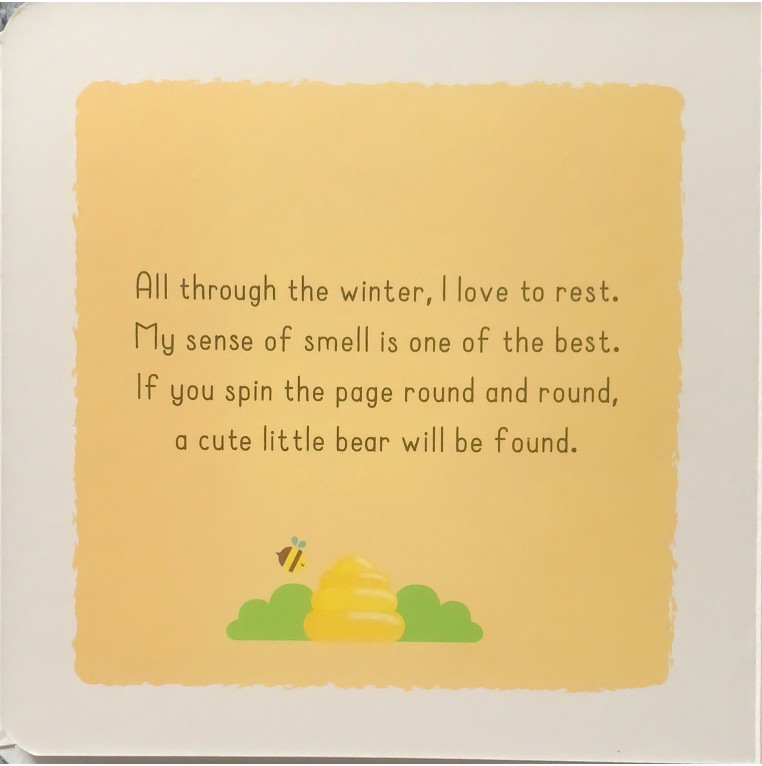 All through the winter, I love to rest.
My sense of smell is one of the best.
If you spin the page round and round,
a cute little bear will be found.